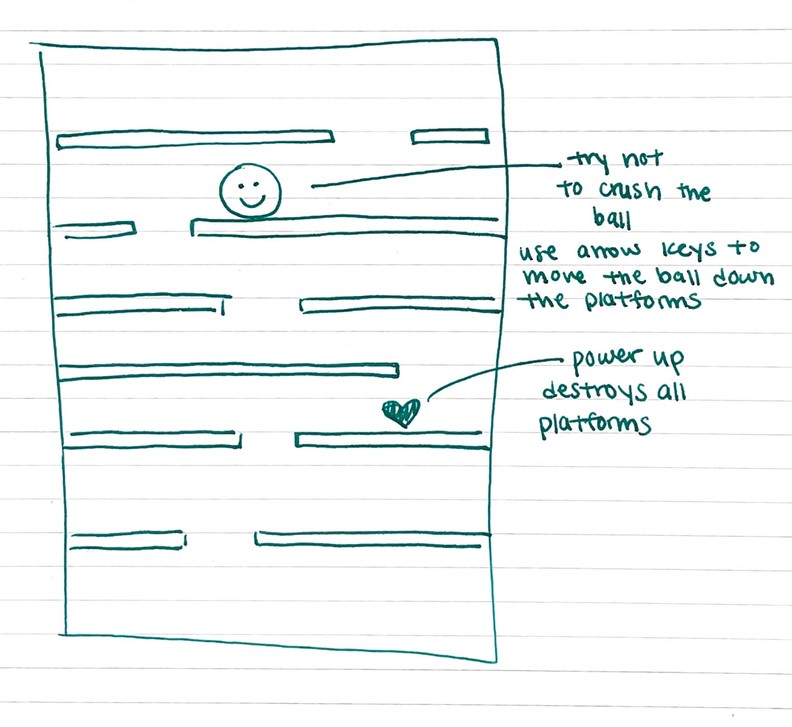 try not
to crush the
ball
use arrow keys to
move the ball down
the platforms
power up
destroys all
platforms